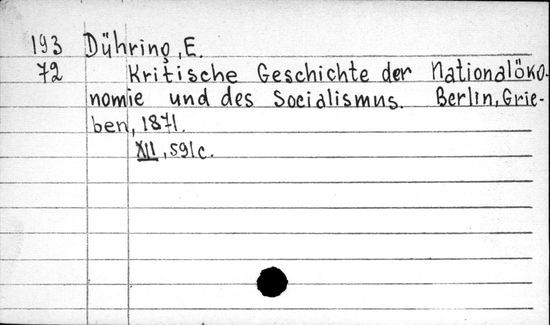 193 Dühring, E.
72 Kritische Geschichte der Nationalöko-
nomie und des Socialismus. Berlin, Grie-
ben, 1871.
XII, 591c.